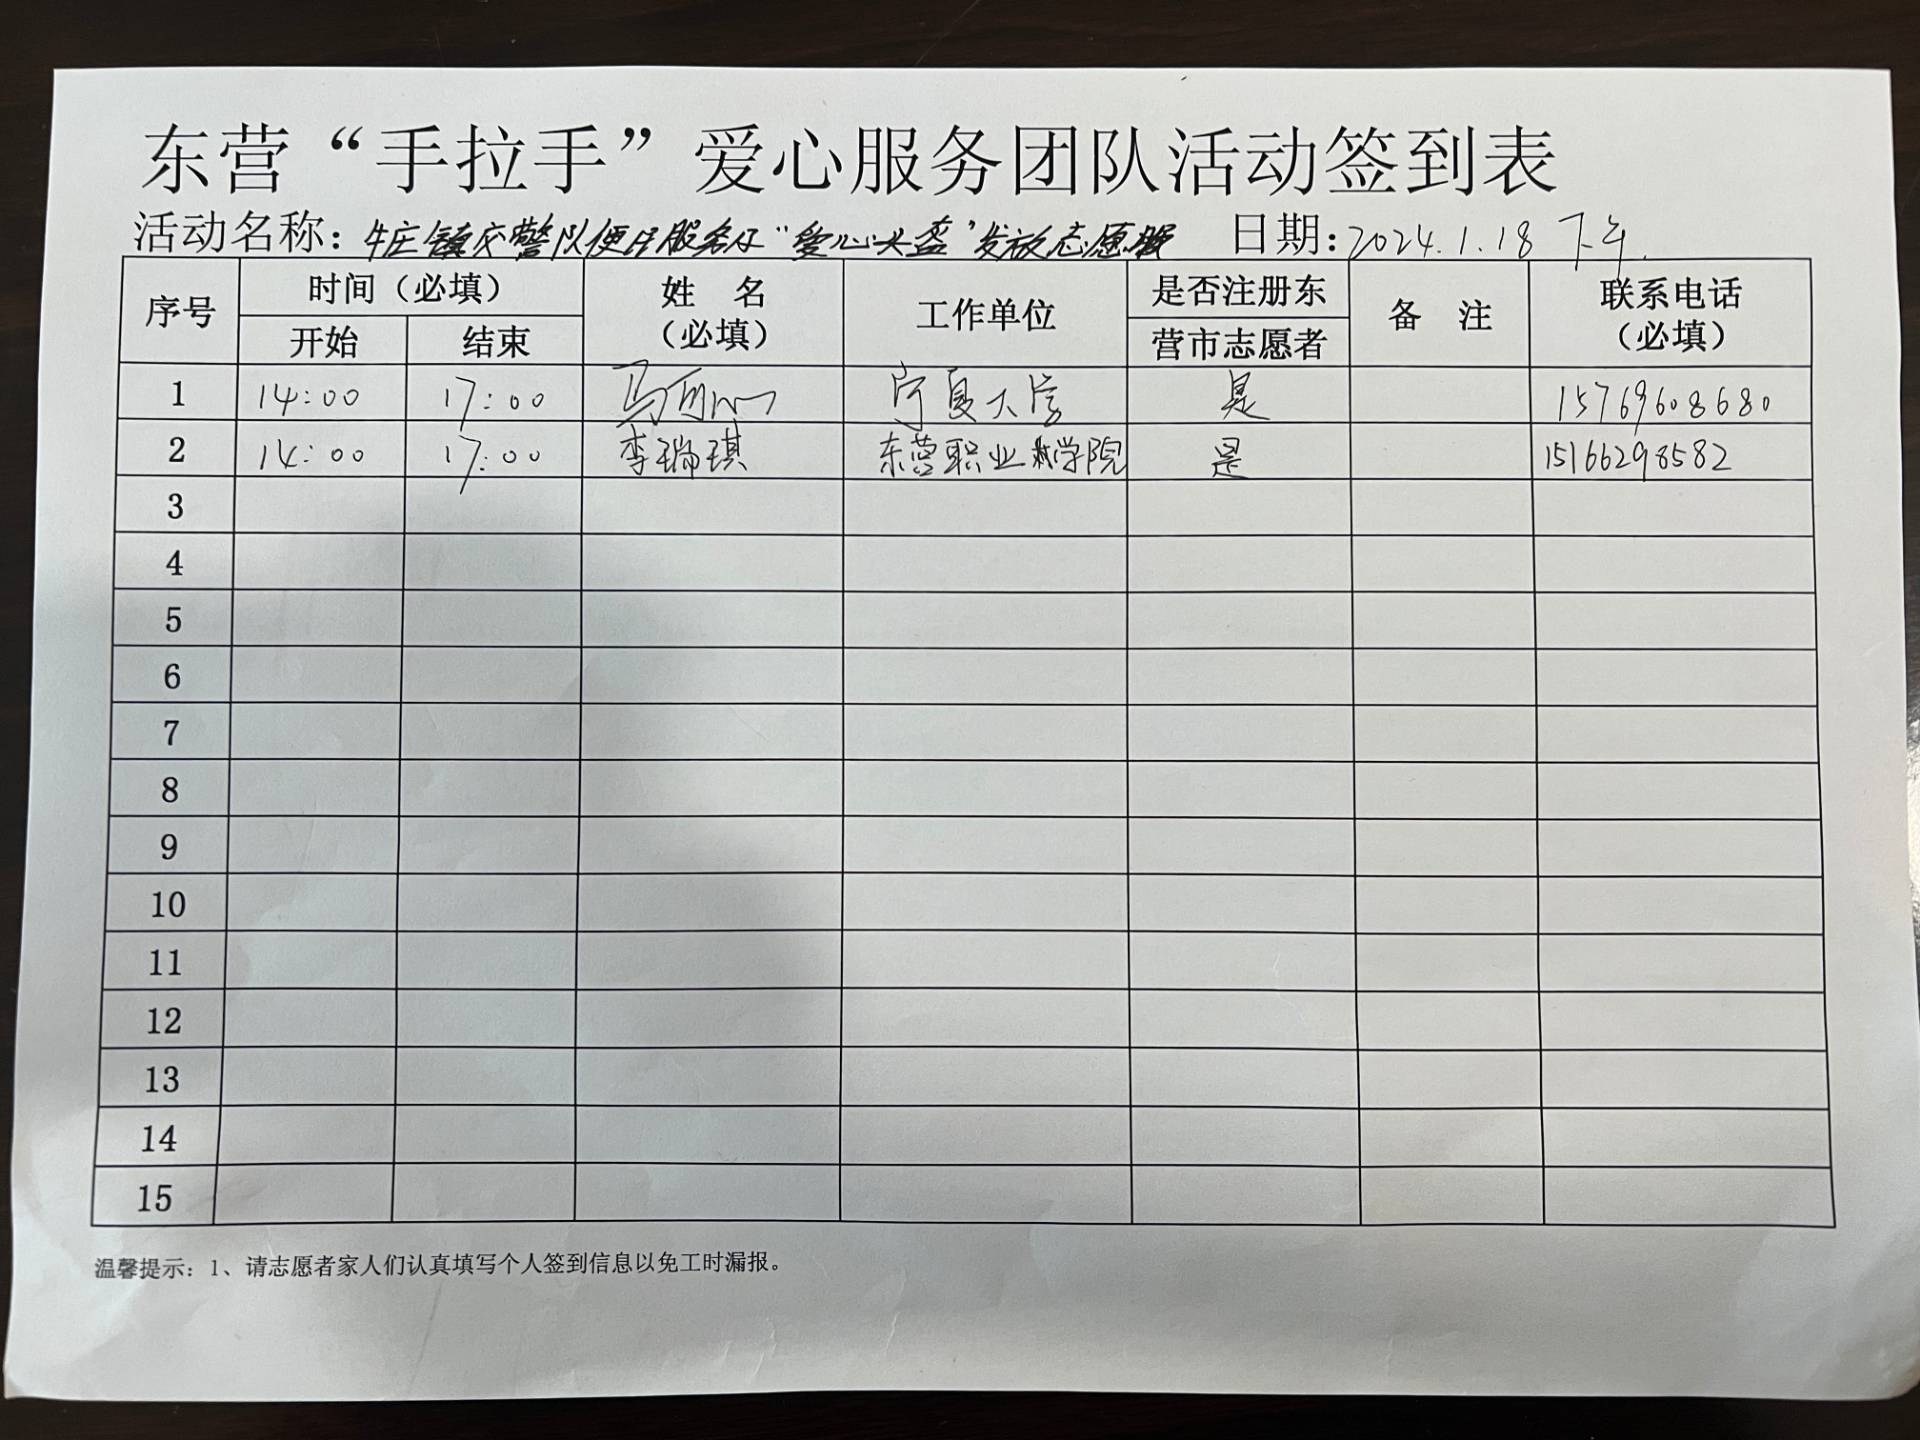 东营“手拉手”爱心服务团队活动签到表
活动名称：牛庄镇交警队便民服务及“爱心头盔”发放志愿服 日期：2024.1.18 下午
序号 时间（必填） 姓 名（必填） 工作单位 是否注册东营市志愿者 备 注 联系电话（必填）
开始 结束
1 14:00 17:00 马 宁夏大学 是 15769608680
2 14:00 17:00 李瑞琪 东营职业学院 是 15166298582
3
4
5
6
7
8
9
10
11
12
13
14
15
温馨提示：1、请志愿者家人们认真填写个人签到信息以免工时漏报。